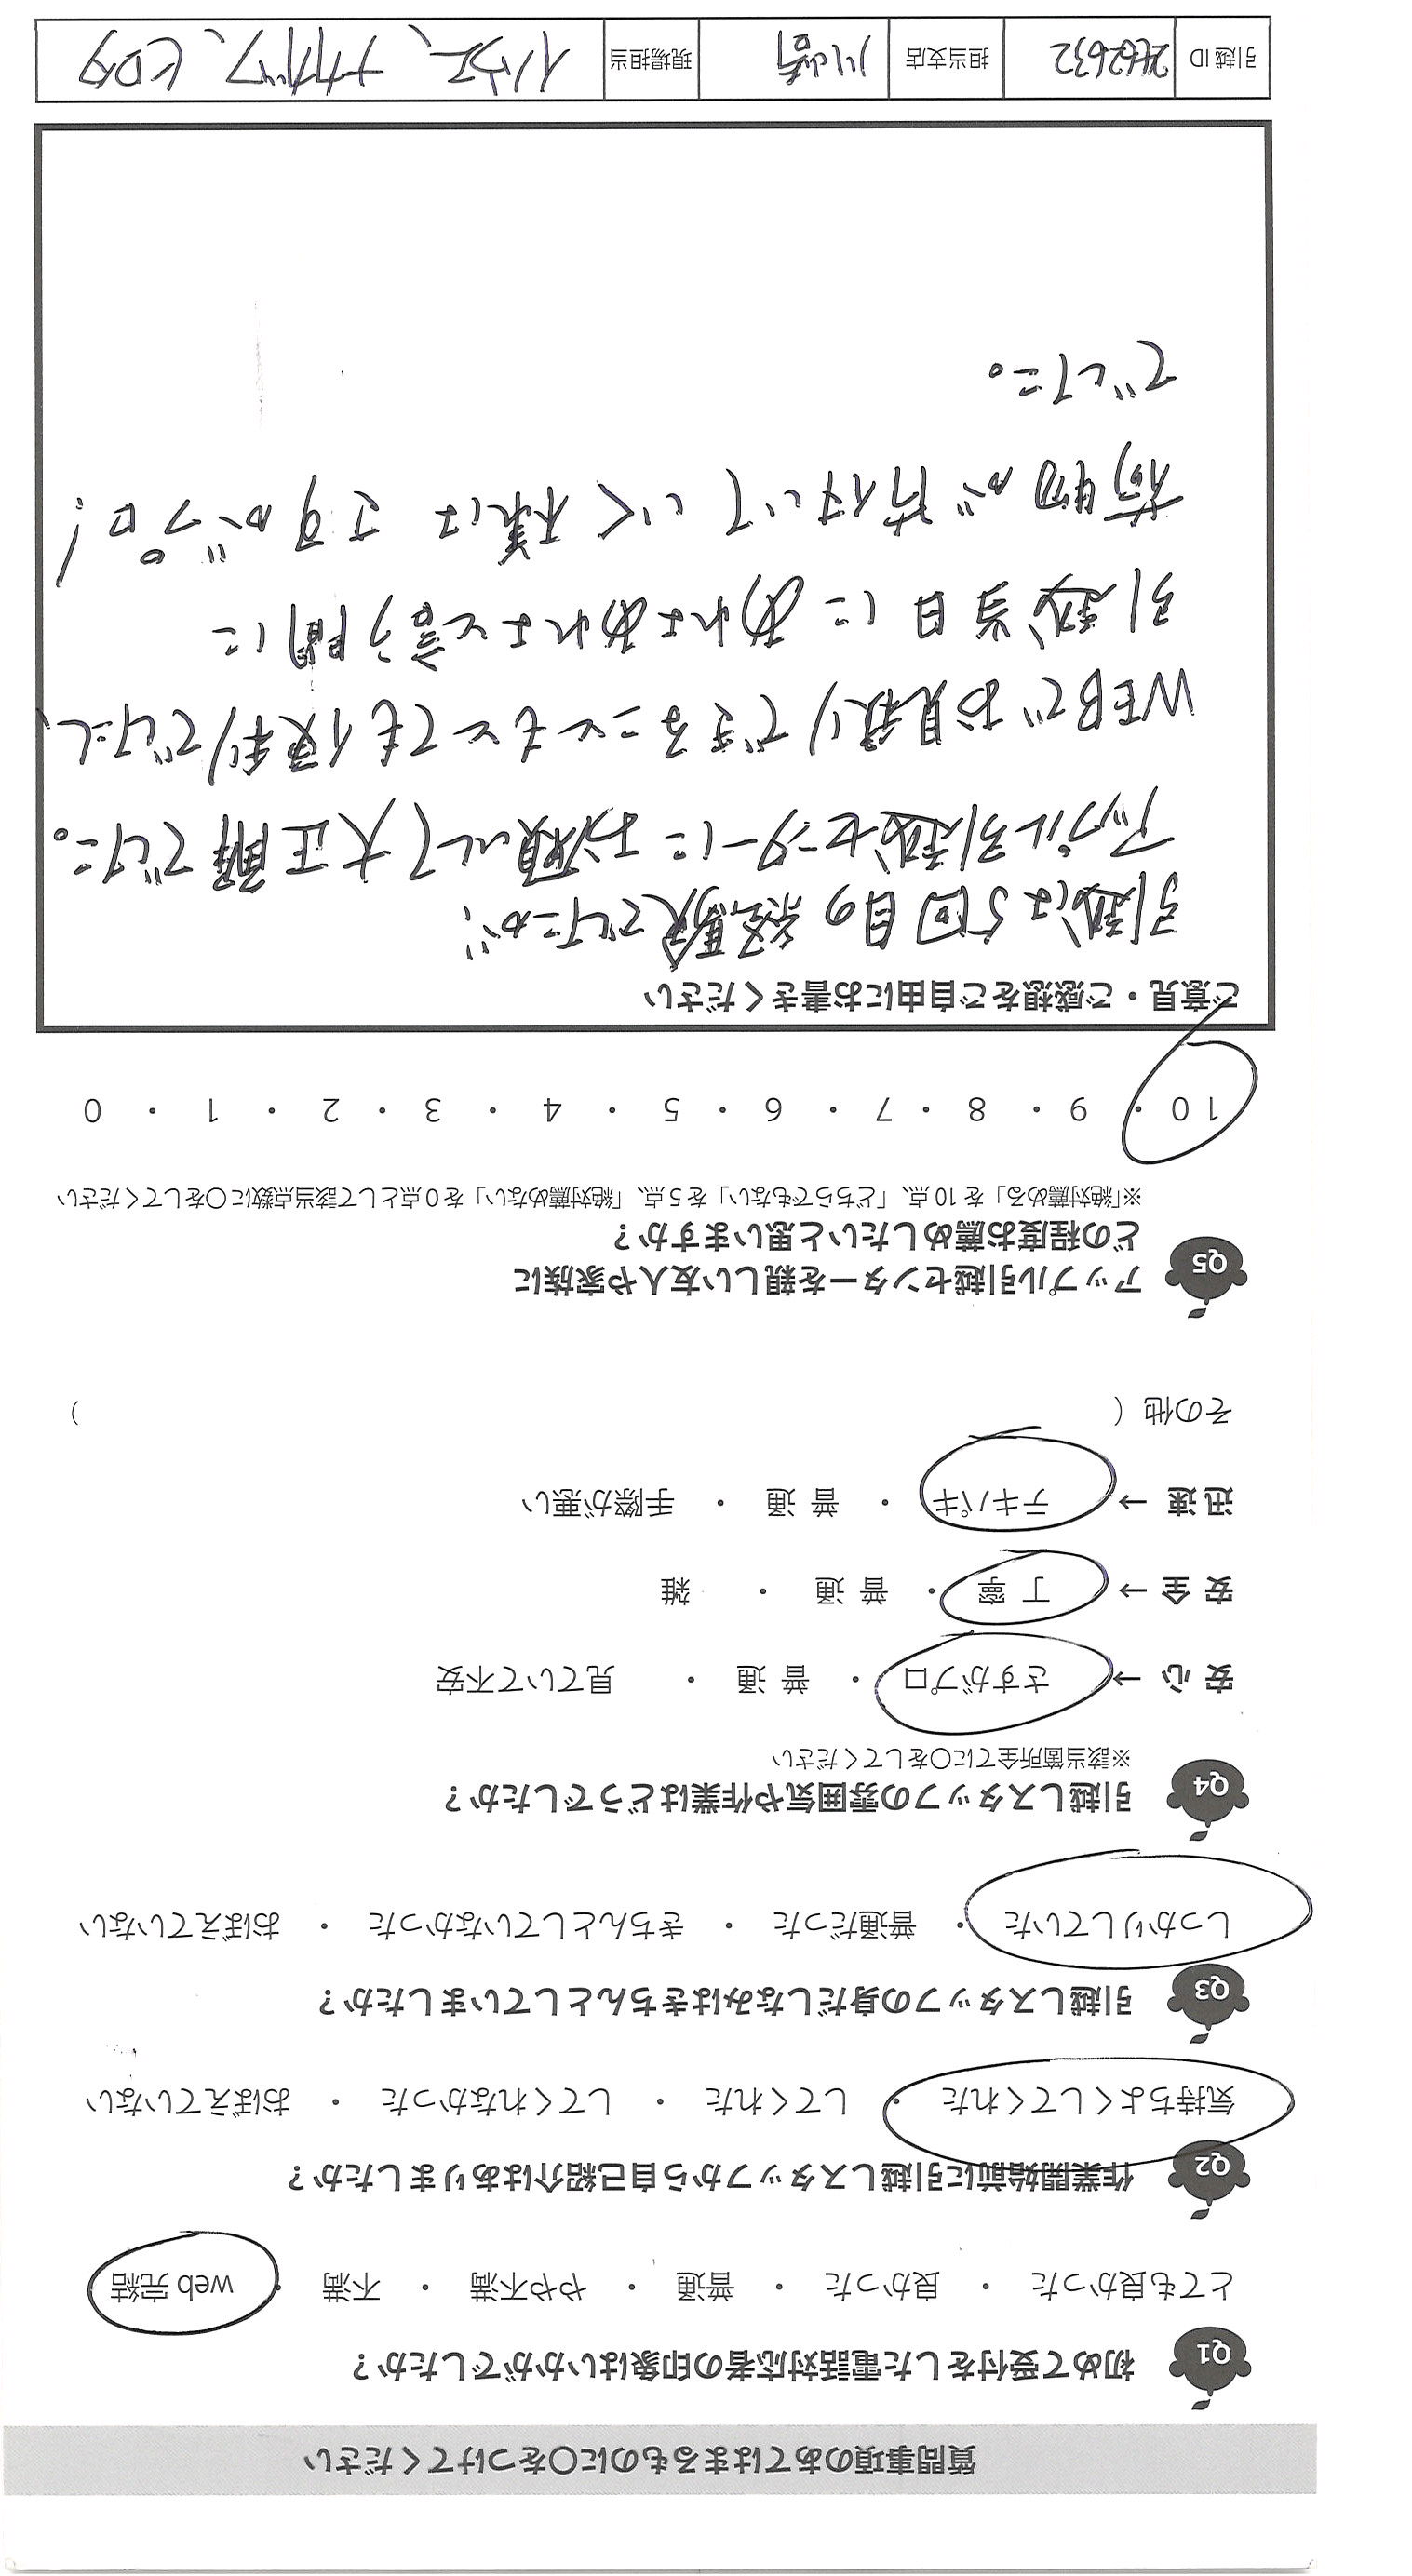 質問事項のあてはまるものに○をつけてください
Q1 初めて受付をした電話対応者の印象はいかがでしたか？
とても良かった ・ 良かった ・ 普通 ・ やや不満 ・ 不満 ・ web 完結
Q2 作業開始前に引越しスタッフから自己紹介はありましたか？
気持ちよくしてくれた ・ してくれた ・ してくれなかった ・ おぼえていない
Q3 引越しスタッフの身だしなみはきちんとしていましたか？
しっかりしていた ・ 普通だった ・ きちんとしていなかった ・ おぼえていない
Q4 引越しスタッフの雰囲気や作業はどうでしたか？
※該当箇所全てに○をしてください
安 心 → さすがプロ ・ 普 通 ・ 見ていて不安
安 全 → 丁 寧 ・ 普 通 ・ 雑
迅 速 → テキパキ ・ 普 通 ・ 手際が悪い
その他（ ）
Q5 アップル引越センターを親しい友人や家族に
どの程度お薦めしたいと思いますか？
※「絶対薦める」を 10 点、「どちらでもない」を 5 点、「絶対薦めない」を 0 点として該当点数に○をしてください
10 ・ 9 ・ 8 ・ 7 ・ 6 ・ 5 ・ 4 ・ 3 ・ 2 ・ 1 ・ 0
ご意見・ご感想をご自由にお書きください
引越は5回目の経験でしたが、
アップル引越センターにお願いして大正解でした。
WEBでお見積りできることもとても便利でしたし、
引越当日にあれよあれよと言う間に
荷物が片付いていく様はさすがプロ！
でした。
引越 ID 2462632 担当支店 川崎 現場担当 イノウエ、ナカガワ、ヒロタ